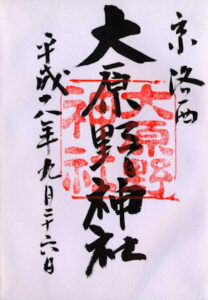 京洛西
大原野神社
大原野
神社
平成十八年九月二十六日